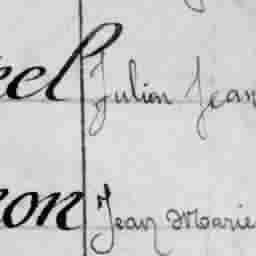 eel Julien Jean
non Jean Marie